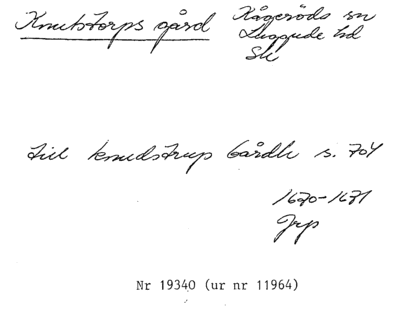 Knutstorps gård
Kågeröds sn
Luggude hd
Sk
till knudstrup Gårdh s. 704
1670-1671
Jrp
Nr 19340 (ur nr 11964)